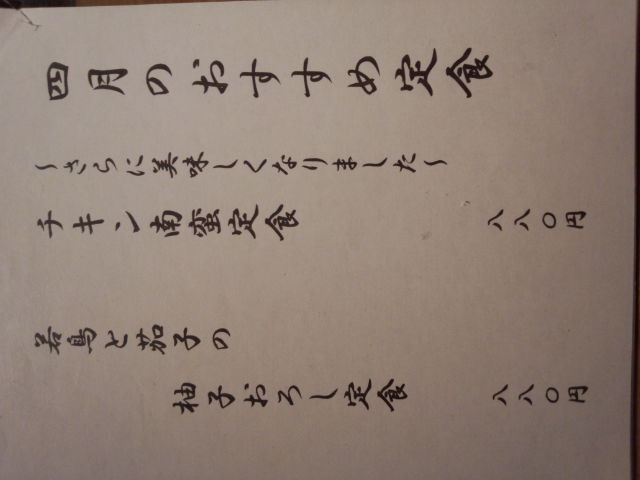 四月のおすすめ定食
〜さらに美味しくなりました〜
チキン南蛮定食 八八〇円
若鳥と茄子の
柚子おろし定食 八八〇円